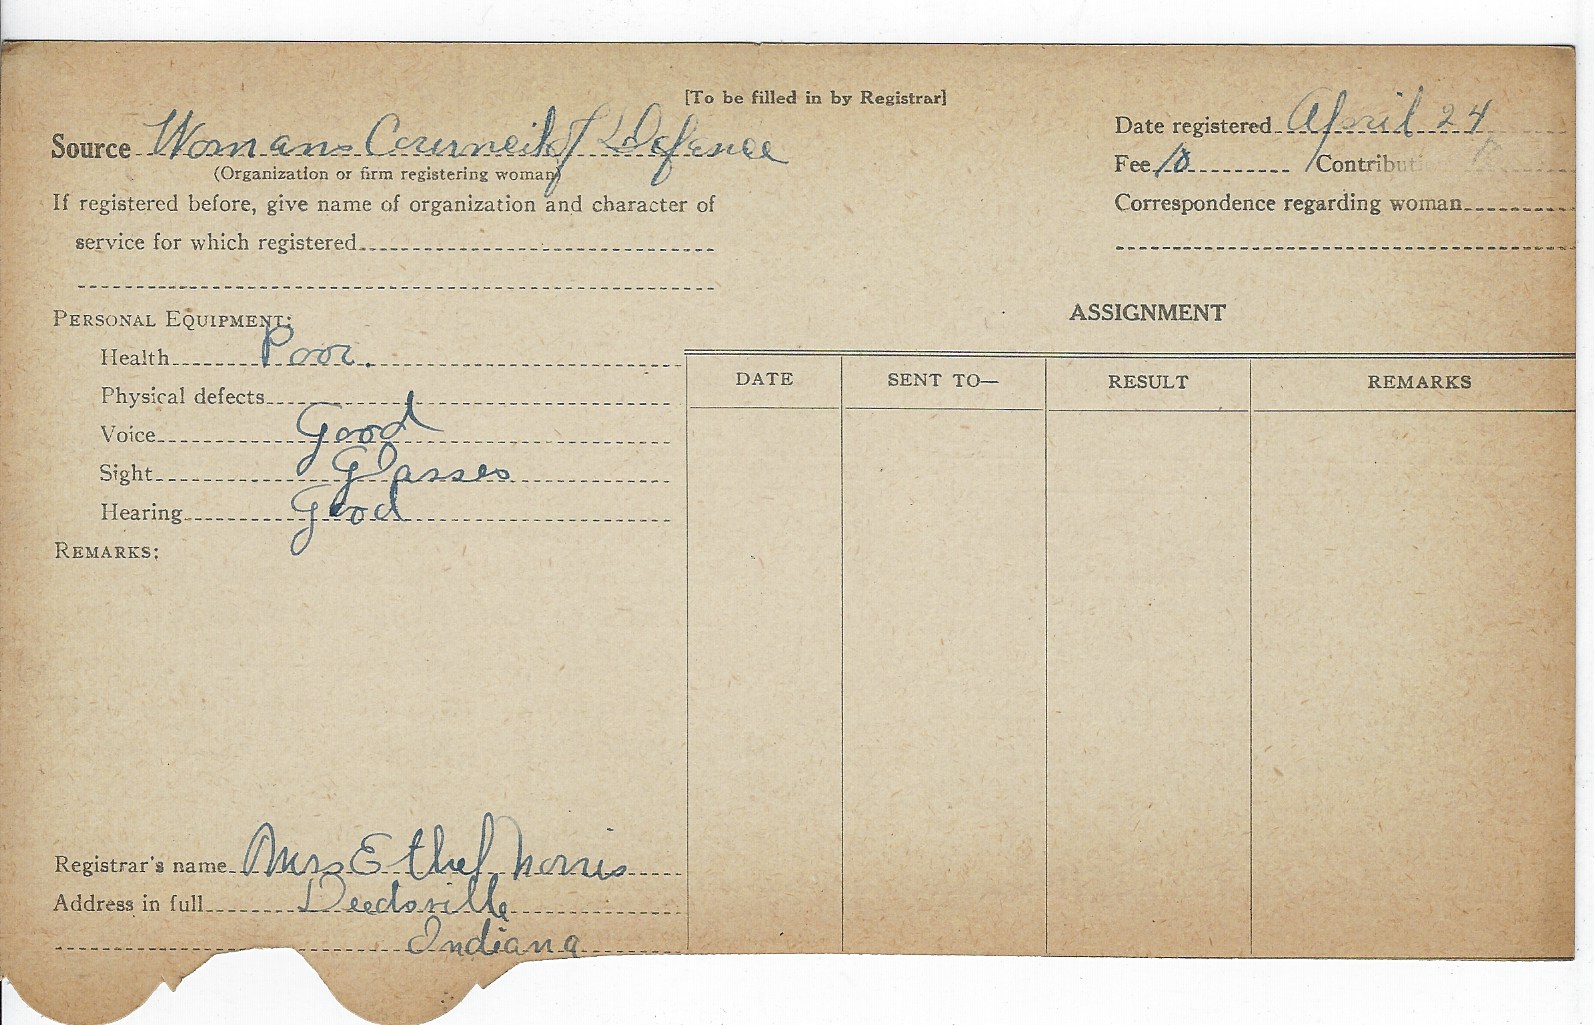 [To be filled in by Registrar]
Source Womans Council of Defence
(Organization or firm registering woman)
If registered before, give name of organization and character of
service for which registered
Date registered April 24
Fee 10 Contributi
Correspondence regarding woman
PERSONAL EQUIPMENT:
Health Poor.
Physical defects
Voice Good
Sight Glasses
Hearing Good
REMARKS:
ASSIGNMENT
DATE SENT TO— RESULT REMARKS
Registrar's name Mrs Ethel Norris
Address in full Deedsville
Indiana